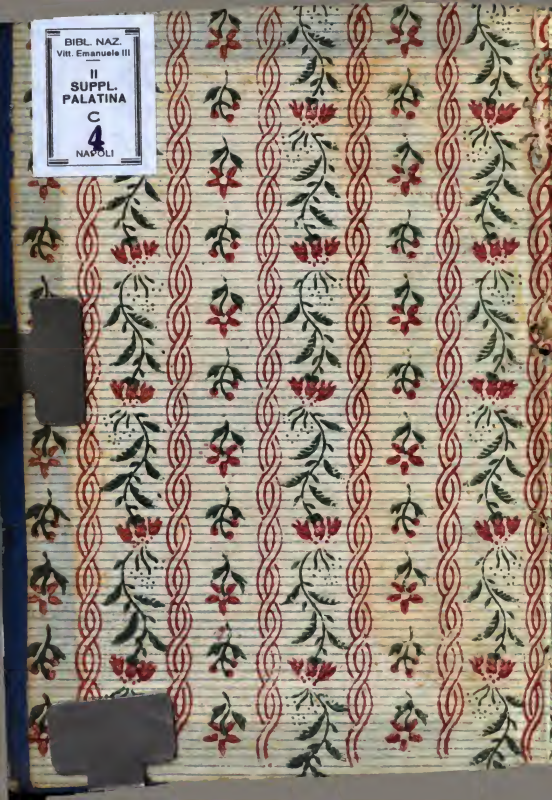 BIBL. NAZ.
Vitt. Emanuele III
II
SUPPL.
PALATINA
C
4
NAPOLI